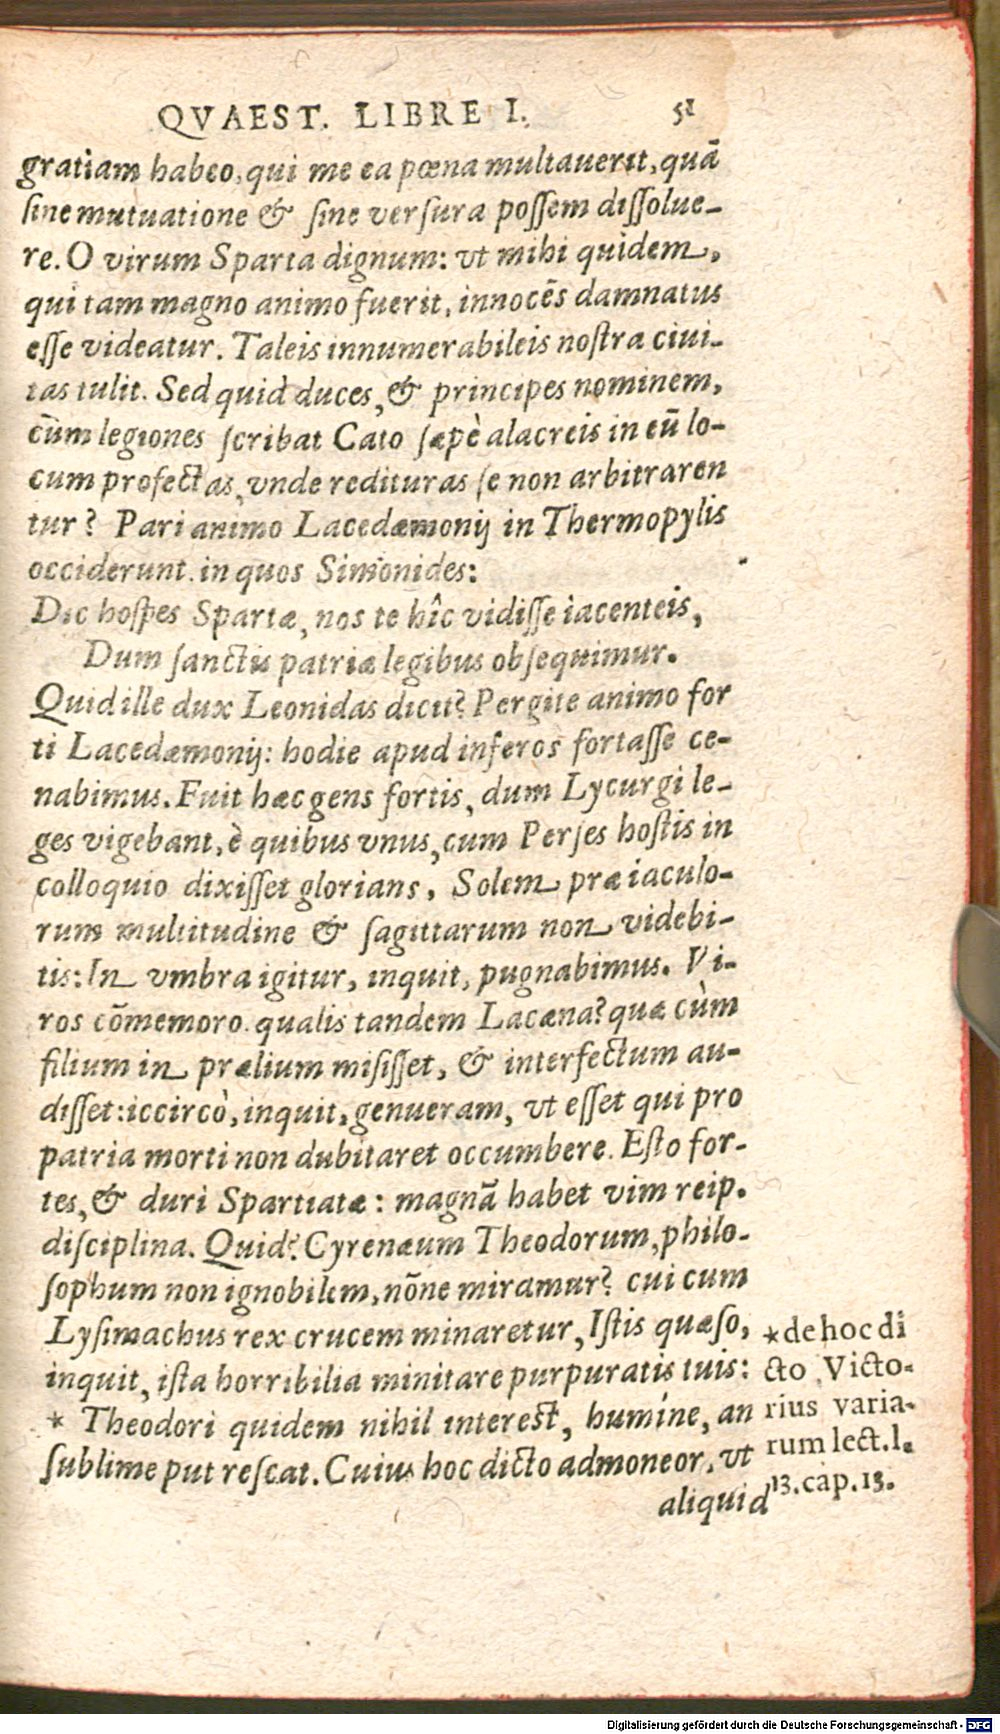 QVAEST. LIBRE I. 51
gratiam habeo, qui me ea pœna multauerit, quã
ſine mutuatione & ſine verſura poſſem diſſolue-
re. O virum Sparta dignum: vt mihi quidem,
qui tam magno animo fuerit, innocẽs damnatus
eſſe videatur. Taleis innumerabileis noſtra ciui-
tas tulit. Sed quid duces, & principes nominem,
cùm legiones ſcribat Cato ſæpè alacreis in eũ lo-
cum profectas, vnde redituras ſe non arbitraren
tur? Pari animo Lacedæmonij in Thermopylis
occiderunt. in quos Simonides:
Dic hoſpes Spartæ, nos te hîc vidiſſe iacenteis,
Dum ſanctis patriæ legibus obſequimur.
Quid ille dux Leonidas dicit? Pergite animo for
ti Lacedæmonij: hodie apud inferos fortaſſe ce-
nabimus. Fuit hæc gens fortis, dum Lycurgi le-
ges vigebant, è quibus vnus, cum Perſes hoſtis in
colloquio dixiſſet glorians, Solem præ iaculo-
rum multitudine & ſagittarum non videbi-
tis: In vmbra igitur, inquit, pugnabimus. Vi-
ros cõmemoro. qualis tandem Lacæna? quæ cùm
filium in prælium miſiſſet, & interfectum au-
diſſet: iccircò, inquit, genueram, vt eſſet qui pro
patria morti non dubitaret occumbere. Eſto for-
tes, & duri Spartiatæ: magnã habet vim reip.
diſciplina. Quid? Cyrenæum Theodorum, philo-
ſophum non ignobilem, nõne miramur? cui cum
Lyſimachus rex crucem minaretur, Iſtis quæſo,
inquit, iſta horribilia minitare purpuratis tuis:
* Theodori quidem nihil intereſt, humíne, an
ſublime putreſcat. Cuius hoc dicto admoneor, vt
aliquid
*de hoc di
cto Victo-
rius varia-
rum lect. l.
13. cap. 13.
Digitalisierung gefördert durch die Deutsche Forschungsgemeinschaft - DFG